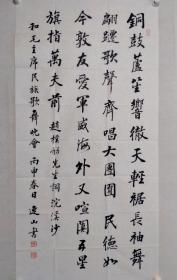 銅鼓蘆笙響徹天輕裾長袖舞
翩躚歌聲齊唱大團圓民德如
今敦友愛軍威海外又喧闐五星
旗指萬夫前 趙樸初先生詞浣溪沙
和毛主席民族歌舞晚會 丙申春日 山書